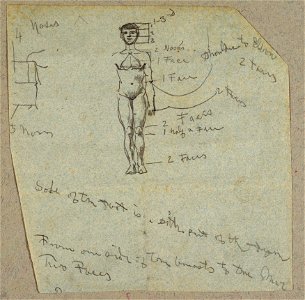 4 Noses
1-3d
2 Noses
1 Face
1 Face
Shoulder to Elbow
2 Faces
2 Faces
2 Faces
1 half a Face
2 Faces
3 Noses
Sole of the foot is a sixth part of the
From one side of the breasts to the other
Two Faces